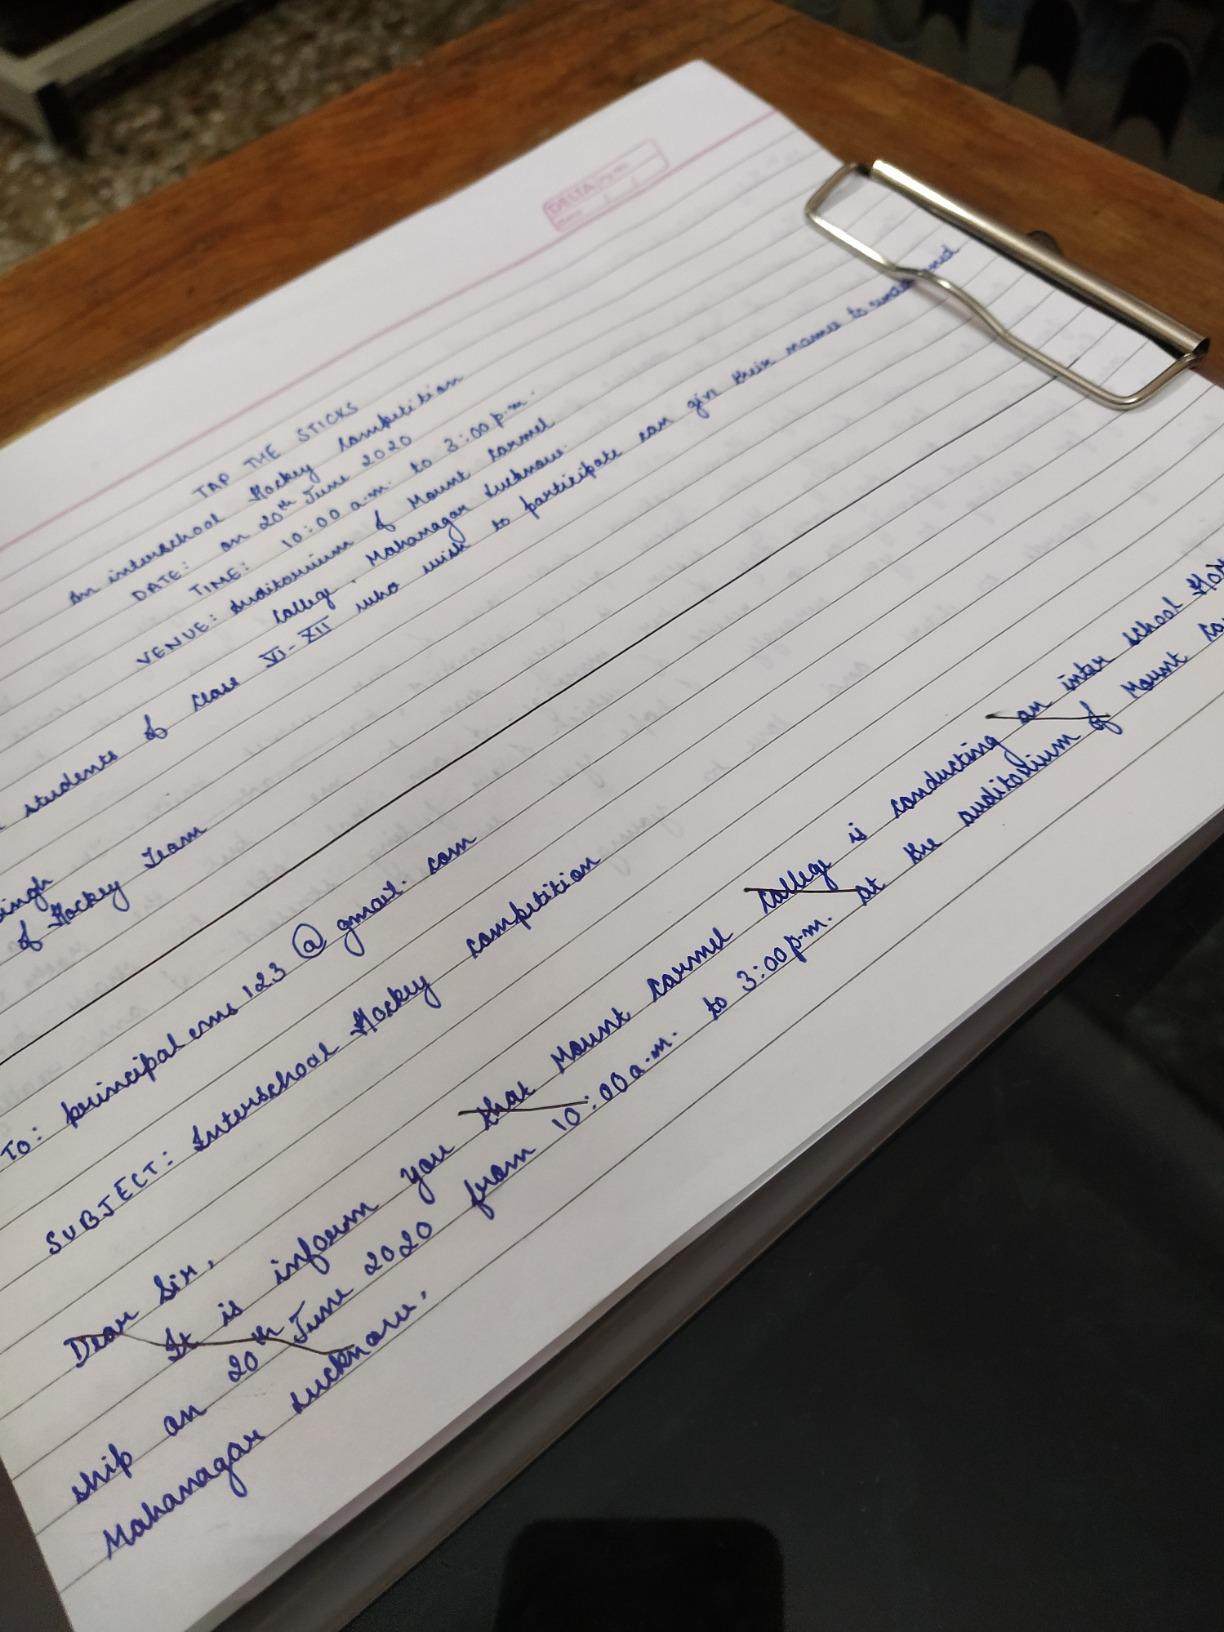 DELTA
TAP THE STICKS
An interschool Hockey Competition
DATE: on 20th June 2020
TIME: 10:00 a.m. to 3:00 p.m.
VENUE: Auditorium of Mount Carmel
College, Mahanagar Lucknow.
students of class VI-XII who wish to participate can give their names to
of Hockey Team
TO: principal cms 123 @ gmail. com
SUBJECT: Interschool Hockey competition
Dear Sir,
It is inform you that Mount Carmel College is conducting an inter school
ship on 20th June 2020 from 10:00 a.m. to 3:00 p.m. at the auditorium of Mount
Mahanagar Lucknow.